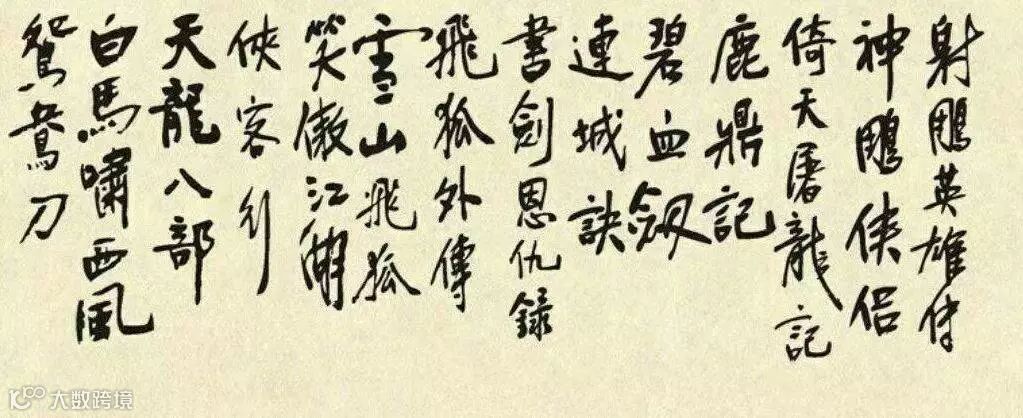 射鵰英雄传
神鵰侠侣
倚天屠龍記
鹿鼎記
碧血劔
連城訣
書劍恩仇録
飛狐外傳
雪山飛狐
笑傲江湖
俠客行
天龍八部
白馬嘯西風
鴛鴦刀
大数跨境